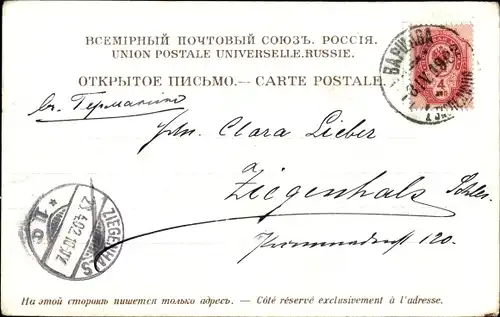 ВСЕМІРНЫЙ ПОЧТОВЫЙ СОЮЗЪ. РОССІЯ.
UNION POSTALE UNIVERSELLE. RUSSIE.
ОТКРЫТОЕ ПИСЬМО. — CARTE POSTALE.
ВАРШАВА
4
въ Германію
Frln. Clara Lieber
a
Ziegenhals Schles.
120.
ZIEGENHALS
23.4.02.
На этой сторонѣ пишется только адресъ. — Côté réservé exclusivement à l'adresse.